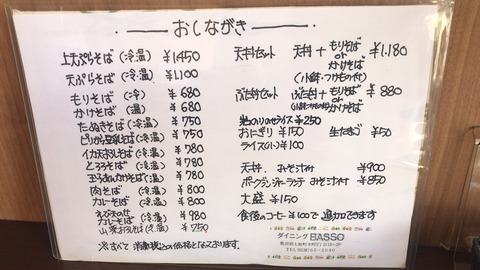 おしながき
上天ぷらそば(冷温) ¥1450
天ぷらそば(冷温) ¥1,100
もりそば(冷) ¥680
かけそば(温) ¥680
たぬきそば(冷温) ¥750
ピリから豆乳そば(冷温) ¥750
イカ天おろしそば(冷温) ¥780
とろろそば(冷温) ¥780
玉子あんかけそば(温) ¥780
肉そば(温) ¥800
カレーそば(温) ¥800
えび天のせ
カレーそば(温) ¥980
山菜おろしそば(冷温) ¥750
※すべて消費税込の価格となっております。
天丼セット 天丼+もりそば or かけそば ¥1,180
(小鉢・つけもの付)
ぶた丼セット ぶた丼+もりそば or かけそば ¥880
のりのせライス ¥250
おにぎり ¥150 生たまご ¥50
ライス(小) ¥100
天丼、みそ汁付 ¥900
ポークジンジャーランチ みそ汁付 ¥850
大盛 ¥150
食後のコーヒー ¥100で追加できます
ダイニング BASSO